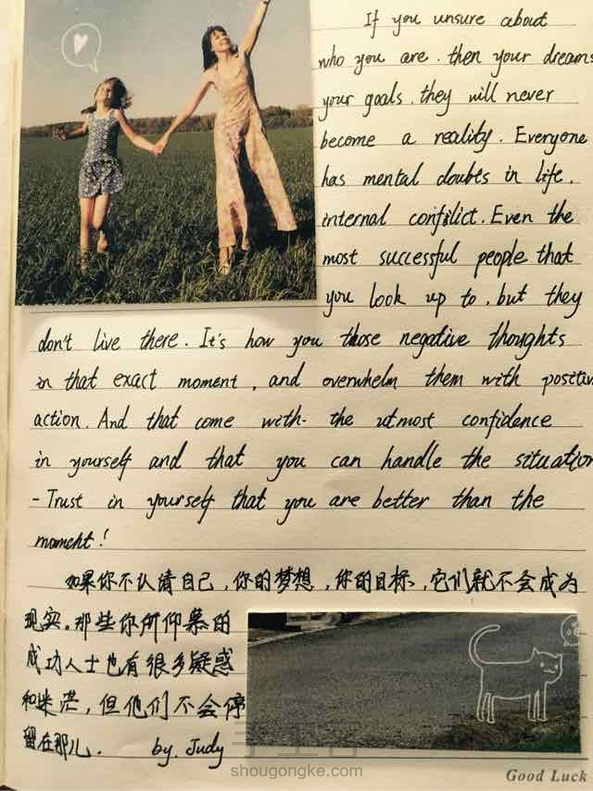 If you unsure about
who you are. then your dreams
your goals. they will never
become a reality. Everyone
has mental doubts in life.
internal conflict. Even the
most successful people that
you look up to. but they
don't live there. It's how you those negative thoughts
in that exact moment, and overwhelm them with positiv
action. And that come with. the utmost confidence
in yourself and that you can handle the situation
- Trust in yourself that you are better than the
moment!
如果你不认请自己,你的梦想,你的目标,它们就不会成为
现实。那些你所仰慕的
成功人士也有很多疑惑
和迷茫,但他们不会停
留在那儿. by. Judy
手工客
shougongke.com
Good Luck